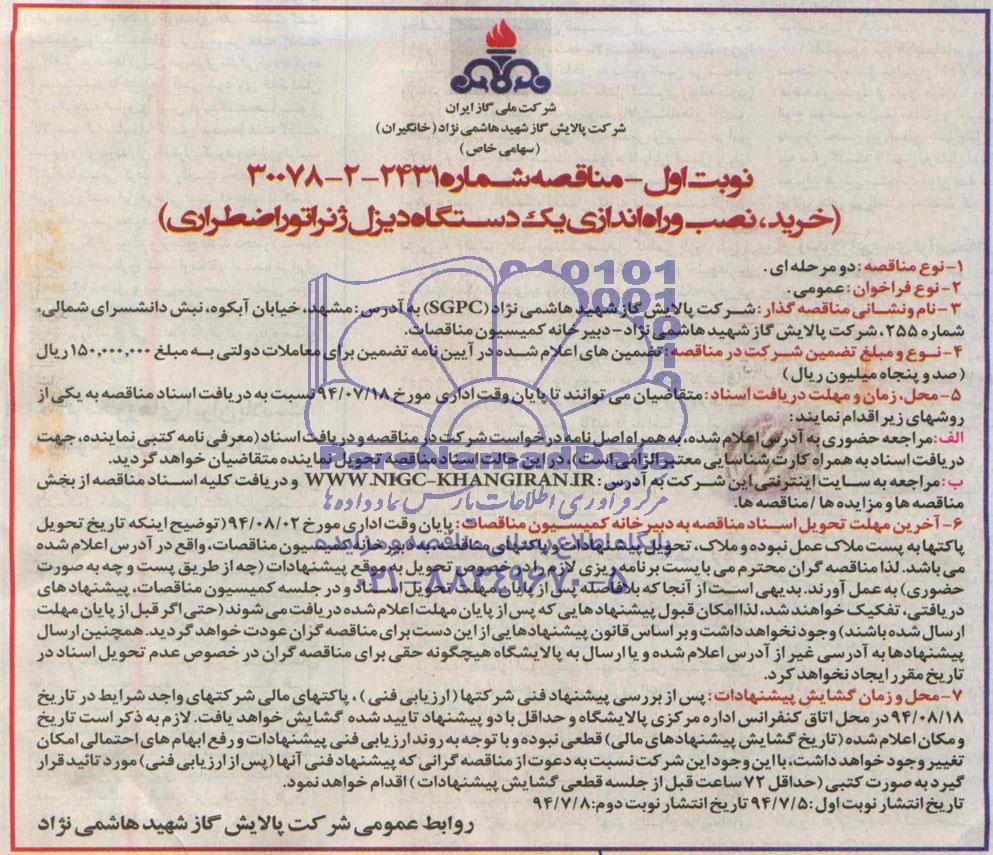 شرکت ملی گاز ایران
شرکت پالایش گاز شهید هاشمی نژاد (خانگیران)
(سهامی خاص)
نوبت اول - مناقصه شماره ۲۴۳۱-۲-۳۰۰۷۸
(خرید، نصب و راه اندازی یک دستگاه دیزل ژنراتور اضطراری)
۱- نوع مناقصه: دو مرحله ای.
۲- نوع فراخوان: عمومی.
۳- نام و نشانی مناقصه گذار: شرکت پالایش گاز شهید هاشمی نژاد (SGPC) به آدرس: مشهد، خیابان آبکوه، نبش دانشسرای شمالی،
شماره ۲۵۵، شرکت پالایش گاز شهید هاشمی نژاد - دبیرخانه کمیسیون مناقصات.
۴- نوع و مبلغ تضمین شرکت در مناقصه: تضمین های اعلام شده در آیین نامه تضمین برای معاملات دولتی به مبلغ ۱۵۰,۰۰۰,۰۰۰ ریال
(صد و پنجاه میلیون ریال)
۵- محل، زمان و مهلت دریافت اسناد: متقاضیان می توانند تا پایان وقت اداری مورخ ۹۴/۰۷/۱۸ نسبت به دریافت اسناد مناقصه به یکی از
روشهای زیر اقدام نمایند:
الف: مراجعه حضوری به آدرس اعلام شده، به همراه اصل نامه درخواست شرکت در مناقصه و دریافت اسناد (معرفی نامه کتبی نماینده، جهت
دریافت اسناد به همراه کارت شناسایی معتبر الزامی است)، در این حالت اسناد مناقصه تحویل نماینده متقاضیان خواهد گردید.
ب: مراجعه به سایت اینترنتی این شرکت به آدرس: WWW.NIGC-KHANGIRAN.IR و دریافت کلیه اسناد مناقصه از بخش
مناقصه ها و مزایده ها / مناقصه ها.
۶- آخرین مهلت تحویل اسناد مناقصه به دبیرخانه کمیسیون مناقصات: پایان وقت اداری مورخ ۹۴/۰۸/۰۲ (توضیح اینکه تاریخ تحویل
پاکتها به پست ملاک عمل نبوده و ملاک، تحویل پیشنهادات و پاکتهای مناقصه، به دبیرخانه کمیسیون مناقصات، واقع در آدرس اعلام شده
می باشد. لذا مناقصه گران محترم می بایست برنامه ریزی لازم را در خصوص تحویل به موقع پیشنهادات (چه از طریق پست و چه به صورت
حضوری) به عمل آورند. بدیهی است از آنجا که بلافاصله پس از پایان مهلت تحویل اسناد و در جلسه کمیسیون مناقصات، پیشنهادهای
دریافتی، تفکیک خواهند شد، لذا امکان قبول پیشنهادهایی که پس از پایان مهلت اعلام شده دریافت می شوند (حتی اگر قبل از پایان مهلت
ارسال شده باشند) وجود نخواهد داشت و بر اساس قانون پیشنهادهایی از این دست برای مناقصه گران عودت خواهد گردید. همچنین ارسال
پیشنهادها به آدرسی غیر از آدرس اعلام شده و یا ارسال به پالایشگاه هیچگونه حقی برای مناقصه گران در خصوص عدم تحویل اسناد در
تاریخ مقرر ایجاد نخواهد کرد.
۷- محل و زمان گشایش پیشنهادات: پس از بررسی پیشنهاد فنی شرکتها (ارزیابی فنی)، پاکتهای مالی شرکتهای واجد شرایط در تاریخ
۹۴/۰۸/۱۸ در محل اتاق کنفرانس اداره مرکزی پالایشگاه و حداقل با دو پیشنهاد تایید شده گشایش خواهد یافت. لازم به ذکر است تاریخ
و مکان اعلام شده (تاریخ گشایش پیشنهادهای مالی) قطعی نبوده و با توجه به روند ارزیابی فنی پیشنهادات و رفع ابهام های احتمالی امکان
تغییر وجود خواهد داشت، با این وجود این شرکت نسبت به دعوت از مناقصه گرانی که پیشنهاد فنی آنها (پس از ارزیابی فنی) مورد تائید قرار
گیرد به صورت کتبی (حداقل ۷۲ ساعت قبل از جلسه قطعی گشایش پیشنهادات) اقدام خواهد نمود.
تاریخ انتشار نوبت اول: ۹۴/۷/۵ تاریخ انتشار نوبت دوم: ۹۴/۷/۸
روابط عمومی شرکت پالایش گاز شهید هاشمی نژاد
ParsNamadData
مرکز فرآوری اطلاعات پارس نماد داده ها
پایگاه اطلاع رسانی مناقصه و مزایده
۰۲۱-۸۸۳۴۹۶۷۰-۵